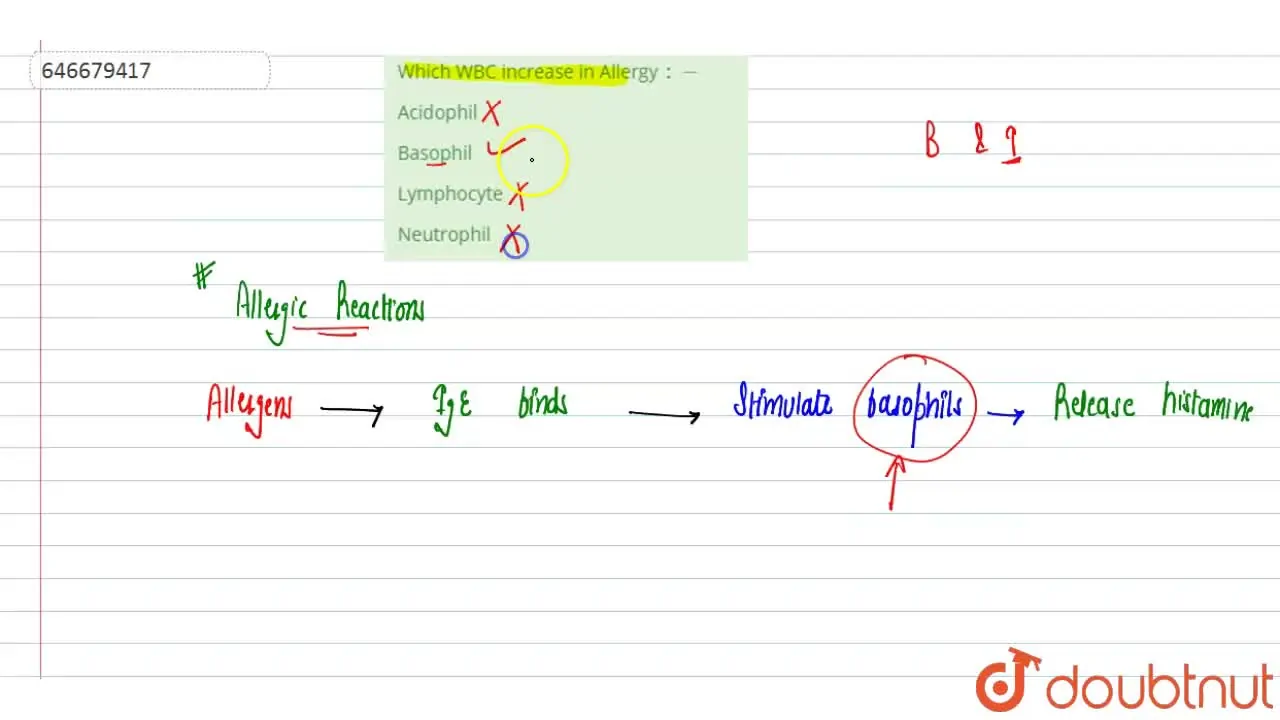 646679417
Which WBC increase in Allergy : —
Acidophil X
Basophil ✓
Lymphocyte X
Neutrophil X
B & T
# Allergic Reactions
Allergens → IgE binds → Stimulate basophils → Release histamine
doubtnut